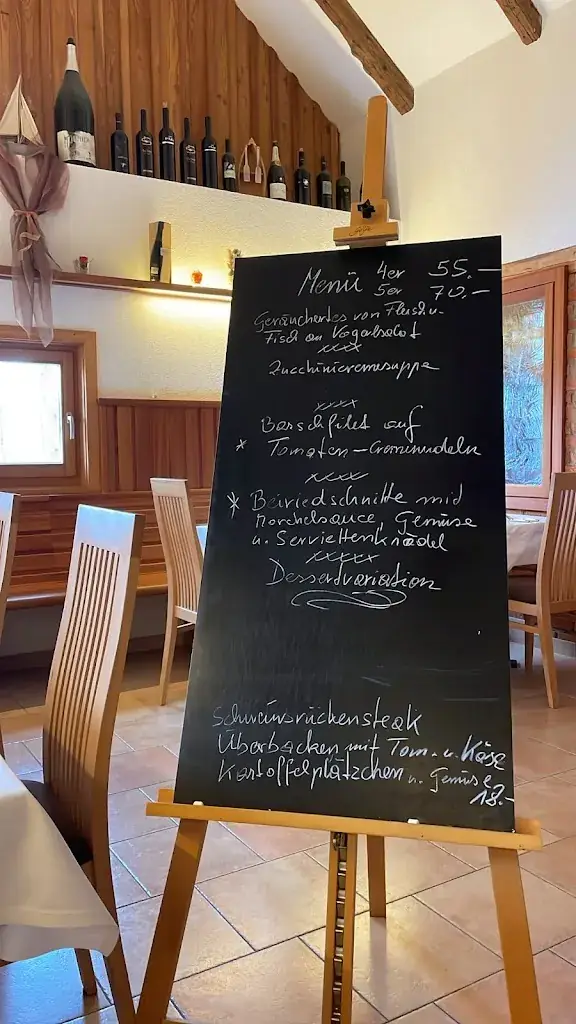 Menü 4er 55.-
5er 70.-
Geräuchertes von Fleisch u.
Fisch an Vogerlsalat
xxxx
Zucchinicremesuppe
xxxx
Barschfilet auf
* Tomaten-Cremenudeln
xxxx
* Beiriedschnitte mid
Morchelsauce, Gemüse
u. Serviettenknödel
xxxxx
Dessertvariation
Schweinsrückensteak
Überbacken mit Tom. u. Käse
Kartoffelplätzchen u. Gemüse
18.-